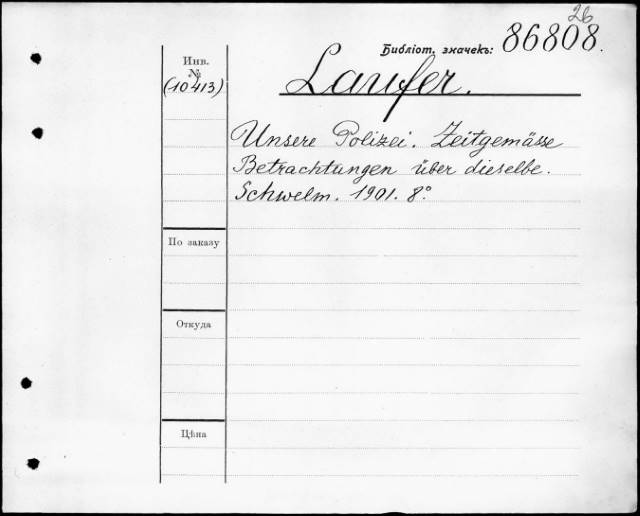 26
Библіот. значекъ: 86808.
Инв.
№
(10413)
Laufer.
Unsere Polizei. Zeitgemässe
Betrachtungen über dieselbe.
Schwelm. 1901. 8°
По заказу
Откуда
Цѣна